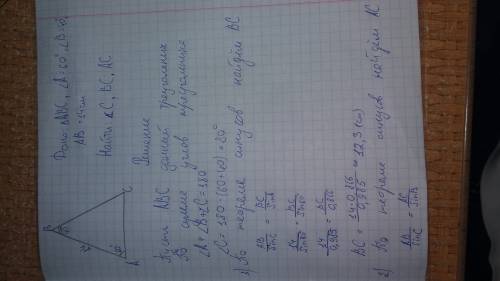 Дано: ΔABC, ∠A=60°, ∠B=40°
AB = 14 см
Найти: ∠C, BC, AC
Решение
Пусть ABC данный треугольник
По сумме углов треугольника
∠A+∠B+∠C=180
∠C=180-(60+40)=80°
1) По теореме синусов найдём BC
AB/SinC = BC/SinA
14/Sin80 = BC/Sin60
14/0,985 = BC/0,866
BC = 14·0,866/0,985 = 12,3 (см)
2) По теореме синусов найдём AC
AB/SinC = AC/SinB
B
A
C